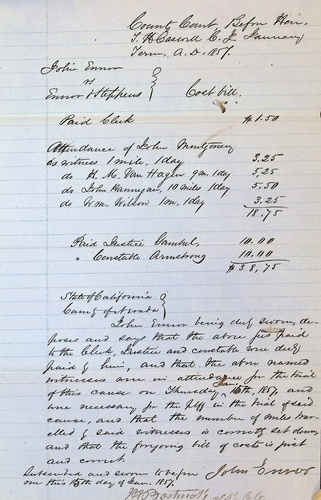 County Court, Before Hon.
T. H. Caswell C. J. January
Term, A.D. 1857.
John Ennor
vs
Ennor & Stephens } Cost bill.
Paid Clerk $1.50
Attendance of John Montgomery
as witness 1 mile, 1 day 3.25
do H. M. Van Hagen 9m. 1 day 5.25
do John Hannegan, 10 miles 1 day 5.50
do Wm. Wilson 1m, 1 day 3.25
18.75
Paid Justice 10.00
" Constable Armstrong 10.00
$38.75
State of California
County of Nevada
John Ennor being duly sworn, de-
poses and says that the above fees paid
to the Clerk, Justice and constable were duly
paid by him, and that the above named
witnesses were in attendance for the trial
of this cause on Thursday Jany 15th, 1857, and
were necessary for the Plff in the trial of said
cause, and that the number of miles tra-
velled by said witnesses is correctly set down,
and that the foregoing bill of costs is just
and correct.
Subscribed and sworn to before John Ennor
me this 15th day of Jan. 1857.